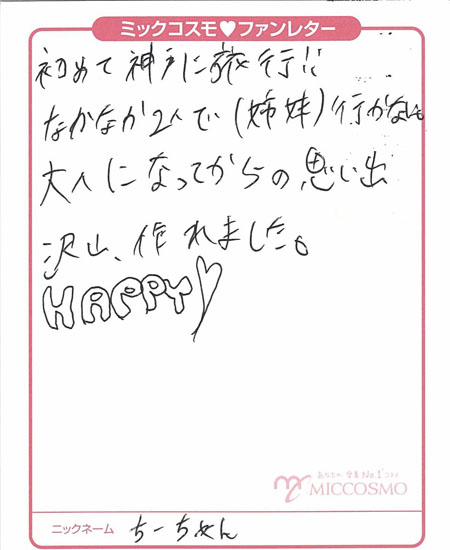 ミックコスモ♥ファンレター
初めて神戸に旅行!!
なかなか2人で(姉妹)行かない。
大人になってからの思い出
沢山、作れました。
HAPPY♡
あなたの 栄養No.1コスメ
MICCOSMO
ニックネーム ちーちゃん